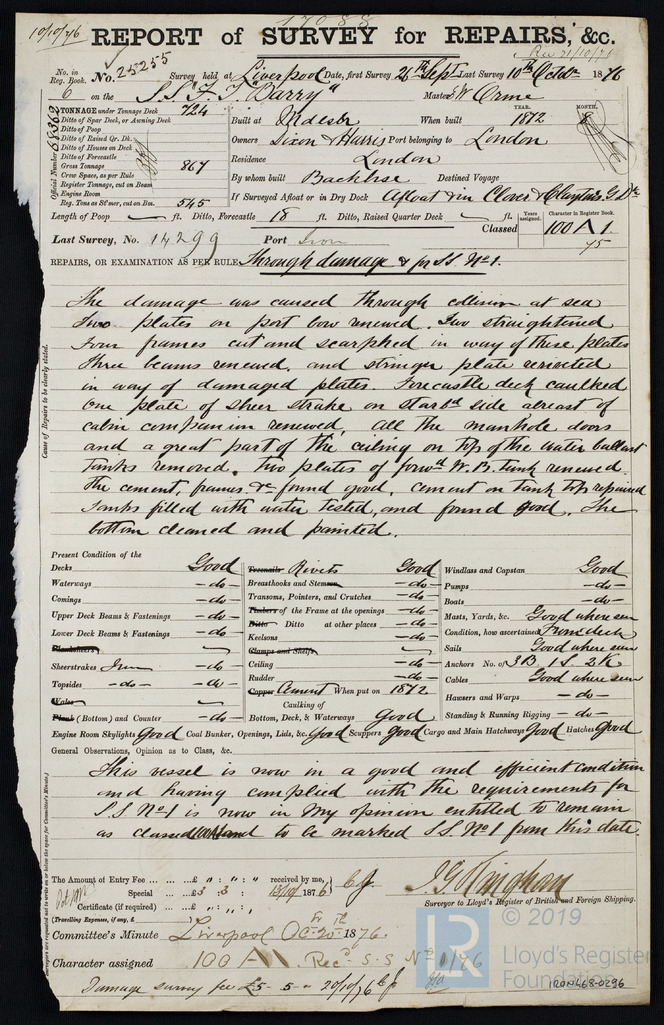 17088
10/10/76 REPORT of SURVEY for REPAIRS, &c.
Rec 21/10/76
No. in Reg. Book. 6 No. 25255 Survey held at Liverpool Date, first Survey 26th Sept Last Survey 10th Octbr 1876
on the S.S. "F. T. Barry" Master W Orme
TONNAGE under Tonnage Deck 724
Ditto of Spar Deck, or Awning Deck
Ditto of Poop
Ditto of Raised Qr. Dk.
Ditto of Houses on Deck
Ditto of Forecastle
Gross Tonnage 867
Crew Space, as per Rule
Register Tonnage, cut on Beam
Engine Room
Reg. Tons as St'mer, cut on Bm. 545
Official Number
Built at Mdesbr When built YEAR. 1872 MONTH. 8
Owners Dixon & Harris Port belonging to London
Residence London
By whom built Backhse Destined Voyage
If Surveyed Afloat or in Dry Dock Afloat & in Clover & Claytons G. Dk
Length of Poop ft. Ditto, Forecastle 18 ft. Ditto, Raised Quarter Deck ft.
Years assigned. Character in Register Book.
Last Survey, No. 14299 Port Iron Classed 100 A 1
75
REPAIRS, OR EXAMINATION AS PER RULE Through damage & for S.S. No 1.
Cause of Repairs to be clearly stated.
The damage was caused through collision at sea
Two plates on port bow renewed. Two straightened
Four frames cut and scarphed in way of these plates
Three beams renewed, and stringer plate reriveted
in way of damaged plates. Forecastle deck caulked
One plate of sheer strake on starbd side abreast of
cabin companion renewed, all the manhole doors
and a great part of the ceiling on top of the water ballast
tanks removed. Two plates of forwd W.B. tank renewed.
The cement, frames &c found good, cement on tank top repaired
Tanks filled with water tested, and found good. The
bottom cleaned and painted.
Present Condition of the
Decks Good
Waterways — do —
Comings — do —
Upper Deck Beams & Fastenings — do —
Lower Deck Beams & Fastenings — do —
Plansheers
Sheerstrakes Iron — do —
Topsides — do — — do —
Wales
Plank (Bottom) and Counter — do —
Treenails Rivets Good
Breasthooks and Stemson — do —
Transoms, Pointers, and Crutches — do —
Timbers of the Frame at the openings — do —
Ditto Ditto at other places — do —
Keelsons — do —
Clamps and Shelfs
Ceiling — do —
Rudder — do —
Copper Cement When put on 1872
Caulking of
Bottom, Deck, & Waterways Good
Windlass and Capstan Good
Pumps — do —
Boats — do —
Masts, Yards, &c. Good where seen
Condition, how ascertained From deck
Sails Good where seen
Anchors No. of 3B. 1S. 2K
Cables Good where seen
Hawsers and Warps — do —
Standing & Running Rigging — do —
Engine Room Skylights Good Coal Bunker, Openings, Lids, &c. Good Scuppers Good Cargo and Main Hatchways Good Hatches Good
General Observations, Opinion as to Class, &c.
This vessel is now in a good and efficient condition
and having complied with the requirements for
S.S No 1 is now in my opinion entitled to remain
as classed 100A1 and to be marked S.S. No 1 from this date.
The Amount of Entry Fee ... £ " : " : " received by me,
Special ... £3 : 3 : 13/10/1876
Certificate (if required) ... £ " : " : "
(Travelling Expenses, if any, £ )
Surveyor to Lloyd's Register of British and Foreign Shipping.
Committee's Minute Liverpool Fr Oct 20th 1876.
Character assigned 100 A1 Recd S.S No 1/76
Damage survey fee £5-5- 20/10/76
© 2019
LR
Lloyd's Register
Foundation
IRON468-0296